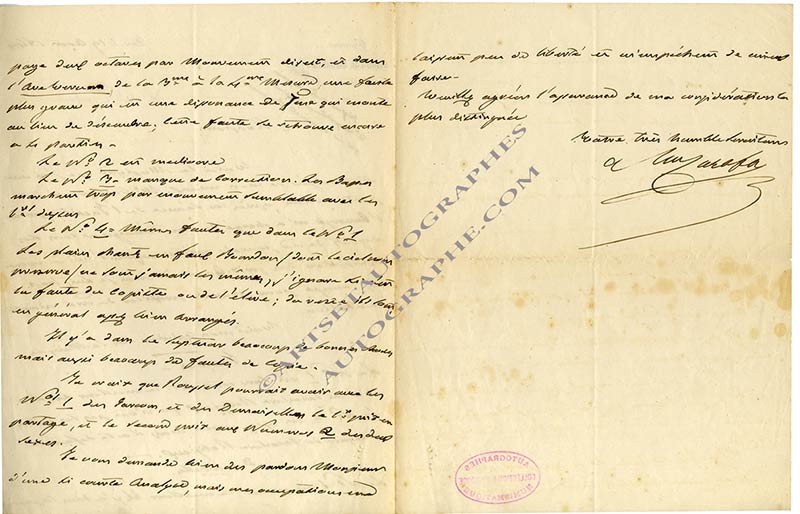 page deux octaves par mouvement direct, et dans
l'avertance de la 3me à la 4me mesure une faute
plus grave qui est une dissonance de qui monte
au lieu de descendre; cette faute se retrouve encore
a 4 parties -
Le No. 2 est mediocre
Le No. 3 manque de correction. Les Basses
marchent trop par mouvement semblable avec les
1ers dessus
Le No. 4 mêmes fautes que dans le No. 1
Les plains chants en faux Bourdon (dont le ciel nous
preserve) ne sont jamais les mêmes, j'ignore si c'est
la faute du copiste ou de l'élève; du reste ils sont
en général assez bien arrangés.
Il y a dans le beaucoup de bonnes choses
mais aussi beaucoup de fautes de copie -
Je crois que pourrait avoir avec les
Nos 1 des Garcons, et des Demoiselles le 1er prix en
partage, et le second prix aux Numeros 2 des deux
sexes.
Je vous demande bien des pardons Monsieur
d'une si courte analyse, mais mes occupations me
laissent peu de liberté et m'empêchent de mieux
faire -
Veuillez agréer l'assurance de ma considération la
plus distinguée
Votre très humble serviteur
Carafa
© ARTS ET AUTOGRAPHES
AUTOGRAPHE.COM
AUTOGRAPHES
NUMISMATIQUE